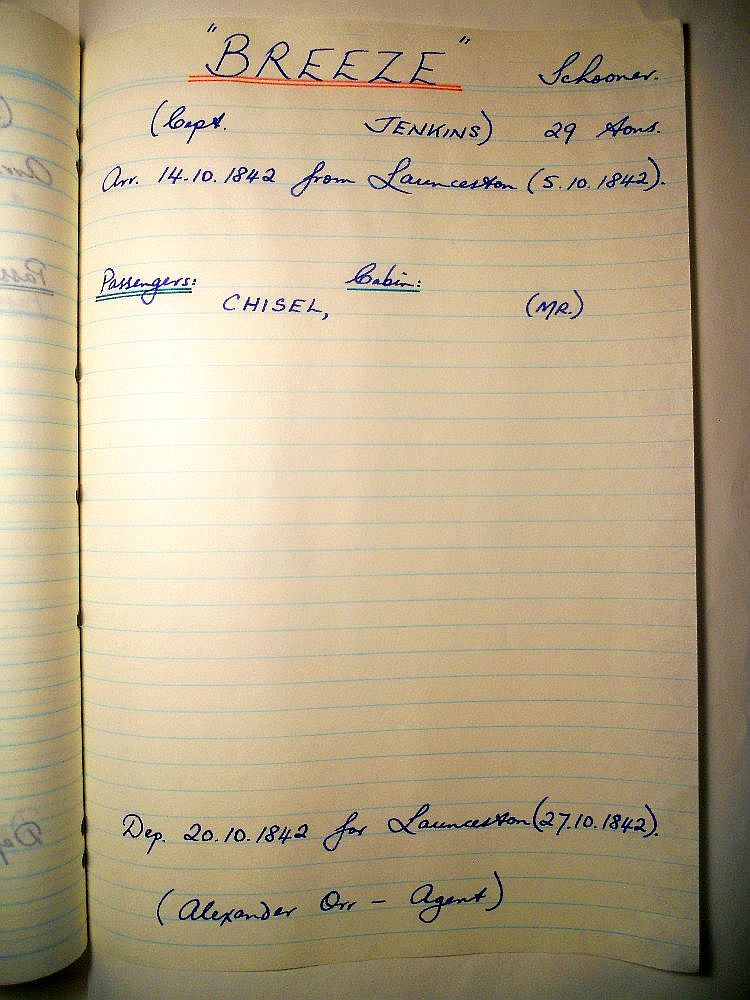 "BREEZE" Schooner.
(Capt. JENKINS) 29 Tons.
Arr. 14.10.1842 from Launceston (5.10.1842).
Passengers: Cabin:
CHISEL, (MR.)
Dep. 20.10.1842 for Launceston (27.10.1842).
(Alexander Orr - Agent)